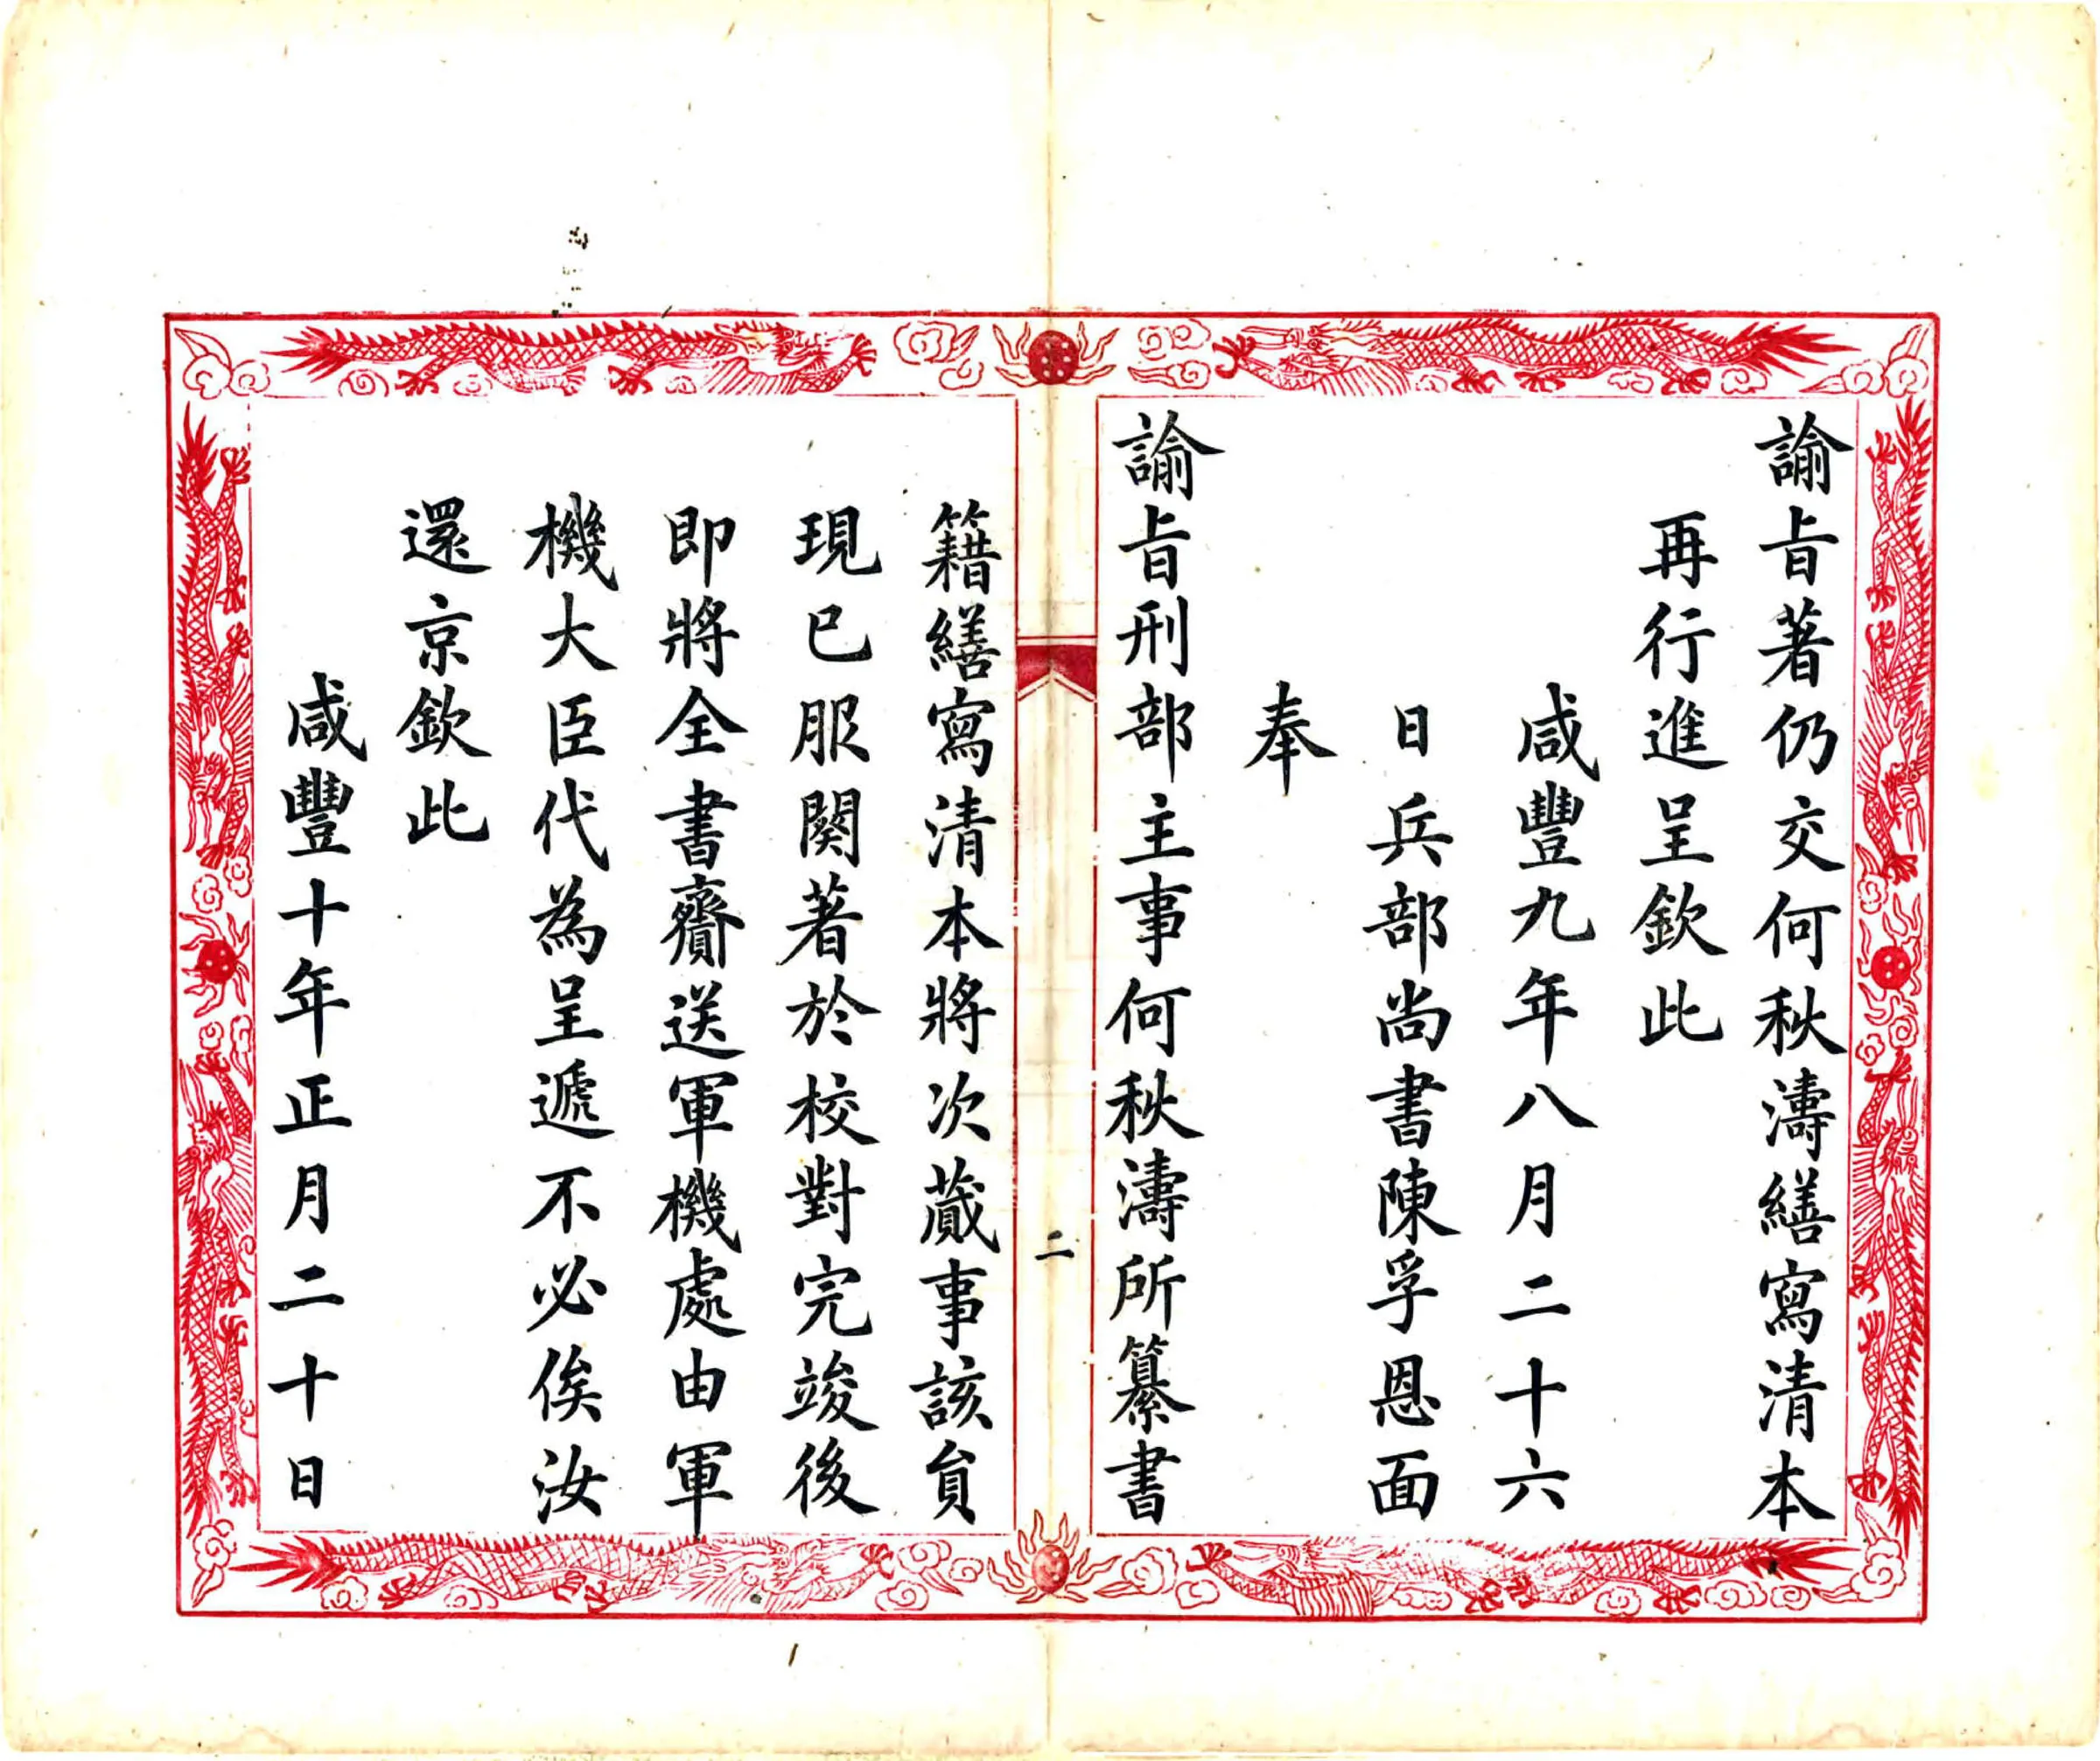 諭旨著仍交何秋濤繕寫清本
再行進呈欽此
咸豐九年八月二十六
日兵部尚書陳孚恩面
奉
諭旨刑部主事何秋濤所纂書
二
籍繕寫清本將次蕆事該員
現已服闋著於校對完竣後
即將全書齎送軍機處由軍
機大臣代為呈遞不必俟汝
還京欽此
咸豐十年正月二十日